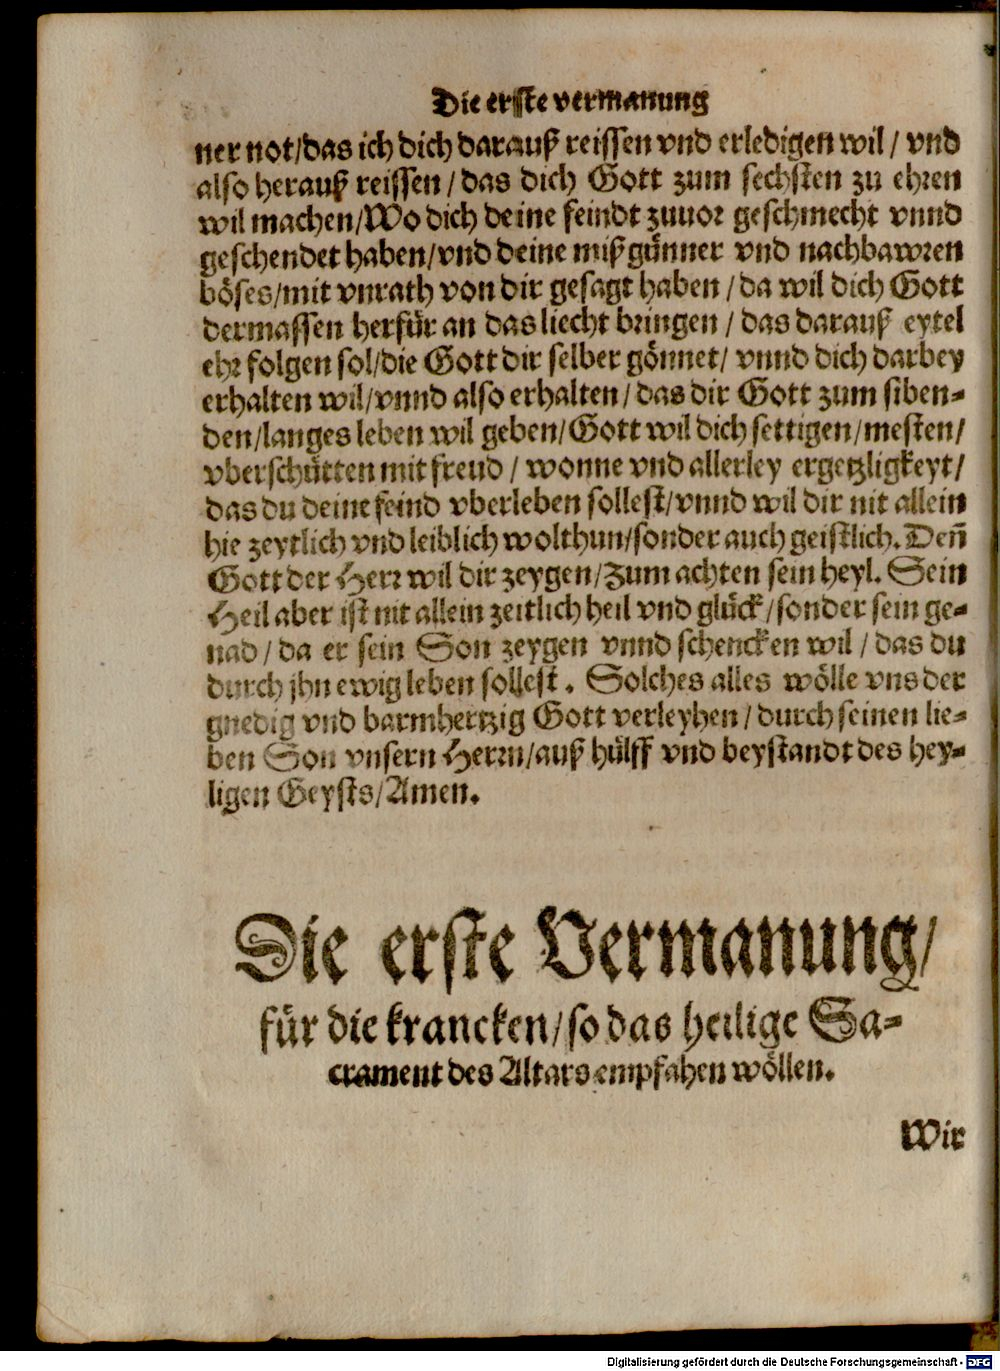 Die erste vermanung
ner not/das ich dich darauß reissen vnd erledigen wil / vnd
also herauß reissen / das dich Gott zum sechsten zu ehren
wil machen/Wo dich deine feindt zuuor geschmecht vnnd
geschendet haben/vnd deine mißgünner vnd nachbawren
böses/mit vnrath von dir gesagt haben / da wil dich Gott
dermassen herfür an das liecht bringen / das darauß eytel
ehr folgen sol/die Gott dir selber gönnet/ vnnd dich darbey
erhalten wil/vnnd also erhalten / das dir Gott zum siben-
den/langes leben wil geben/Gott wil dich settigen/mesten/
vberschütten mit freud / wonne vnd allerley ergetzligkeyt/
das du deine feind vberleben sollest/vnnd wil dir nit allein
hie zeytlich vnd leiblich wolthun/sonder auch geistlich. Deñ
Gott der Herr wil dir zeygen/Zum achten sein heyl. Sein
Heil aber ist nit allein zeitlich heil vnd glück/sonder sein ge-
nad / da er sein Son zeygen vnnd schencken wil / das du
durch jhn ewig leben sollest. Solches alles wölle vns der
gnedig vnd barmhertzig Gott verleyhen / durch seinen lie-
ben Son vnsern Herrn/auß hülff vnd beystandt des hey-
ligen Geysts/Amen.
Die erste Vermanung/
für die krancken/so das heilige Sa-
crament des Altars empfahen wöllen.
Wir
Digitalisierung gefördert durch die Deutsche Forschungsgemeinschaft - DFG